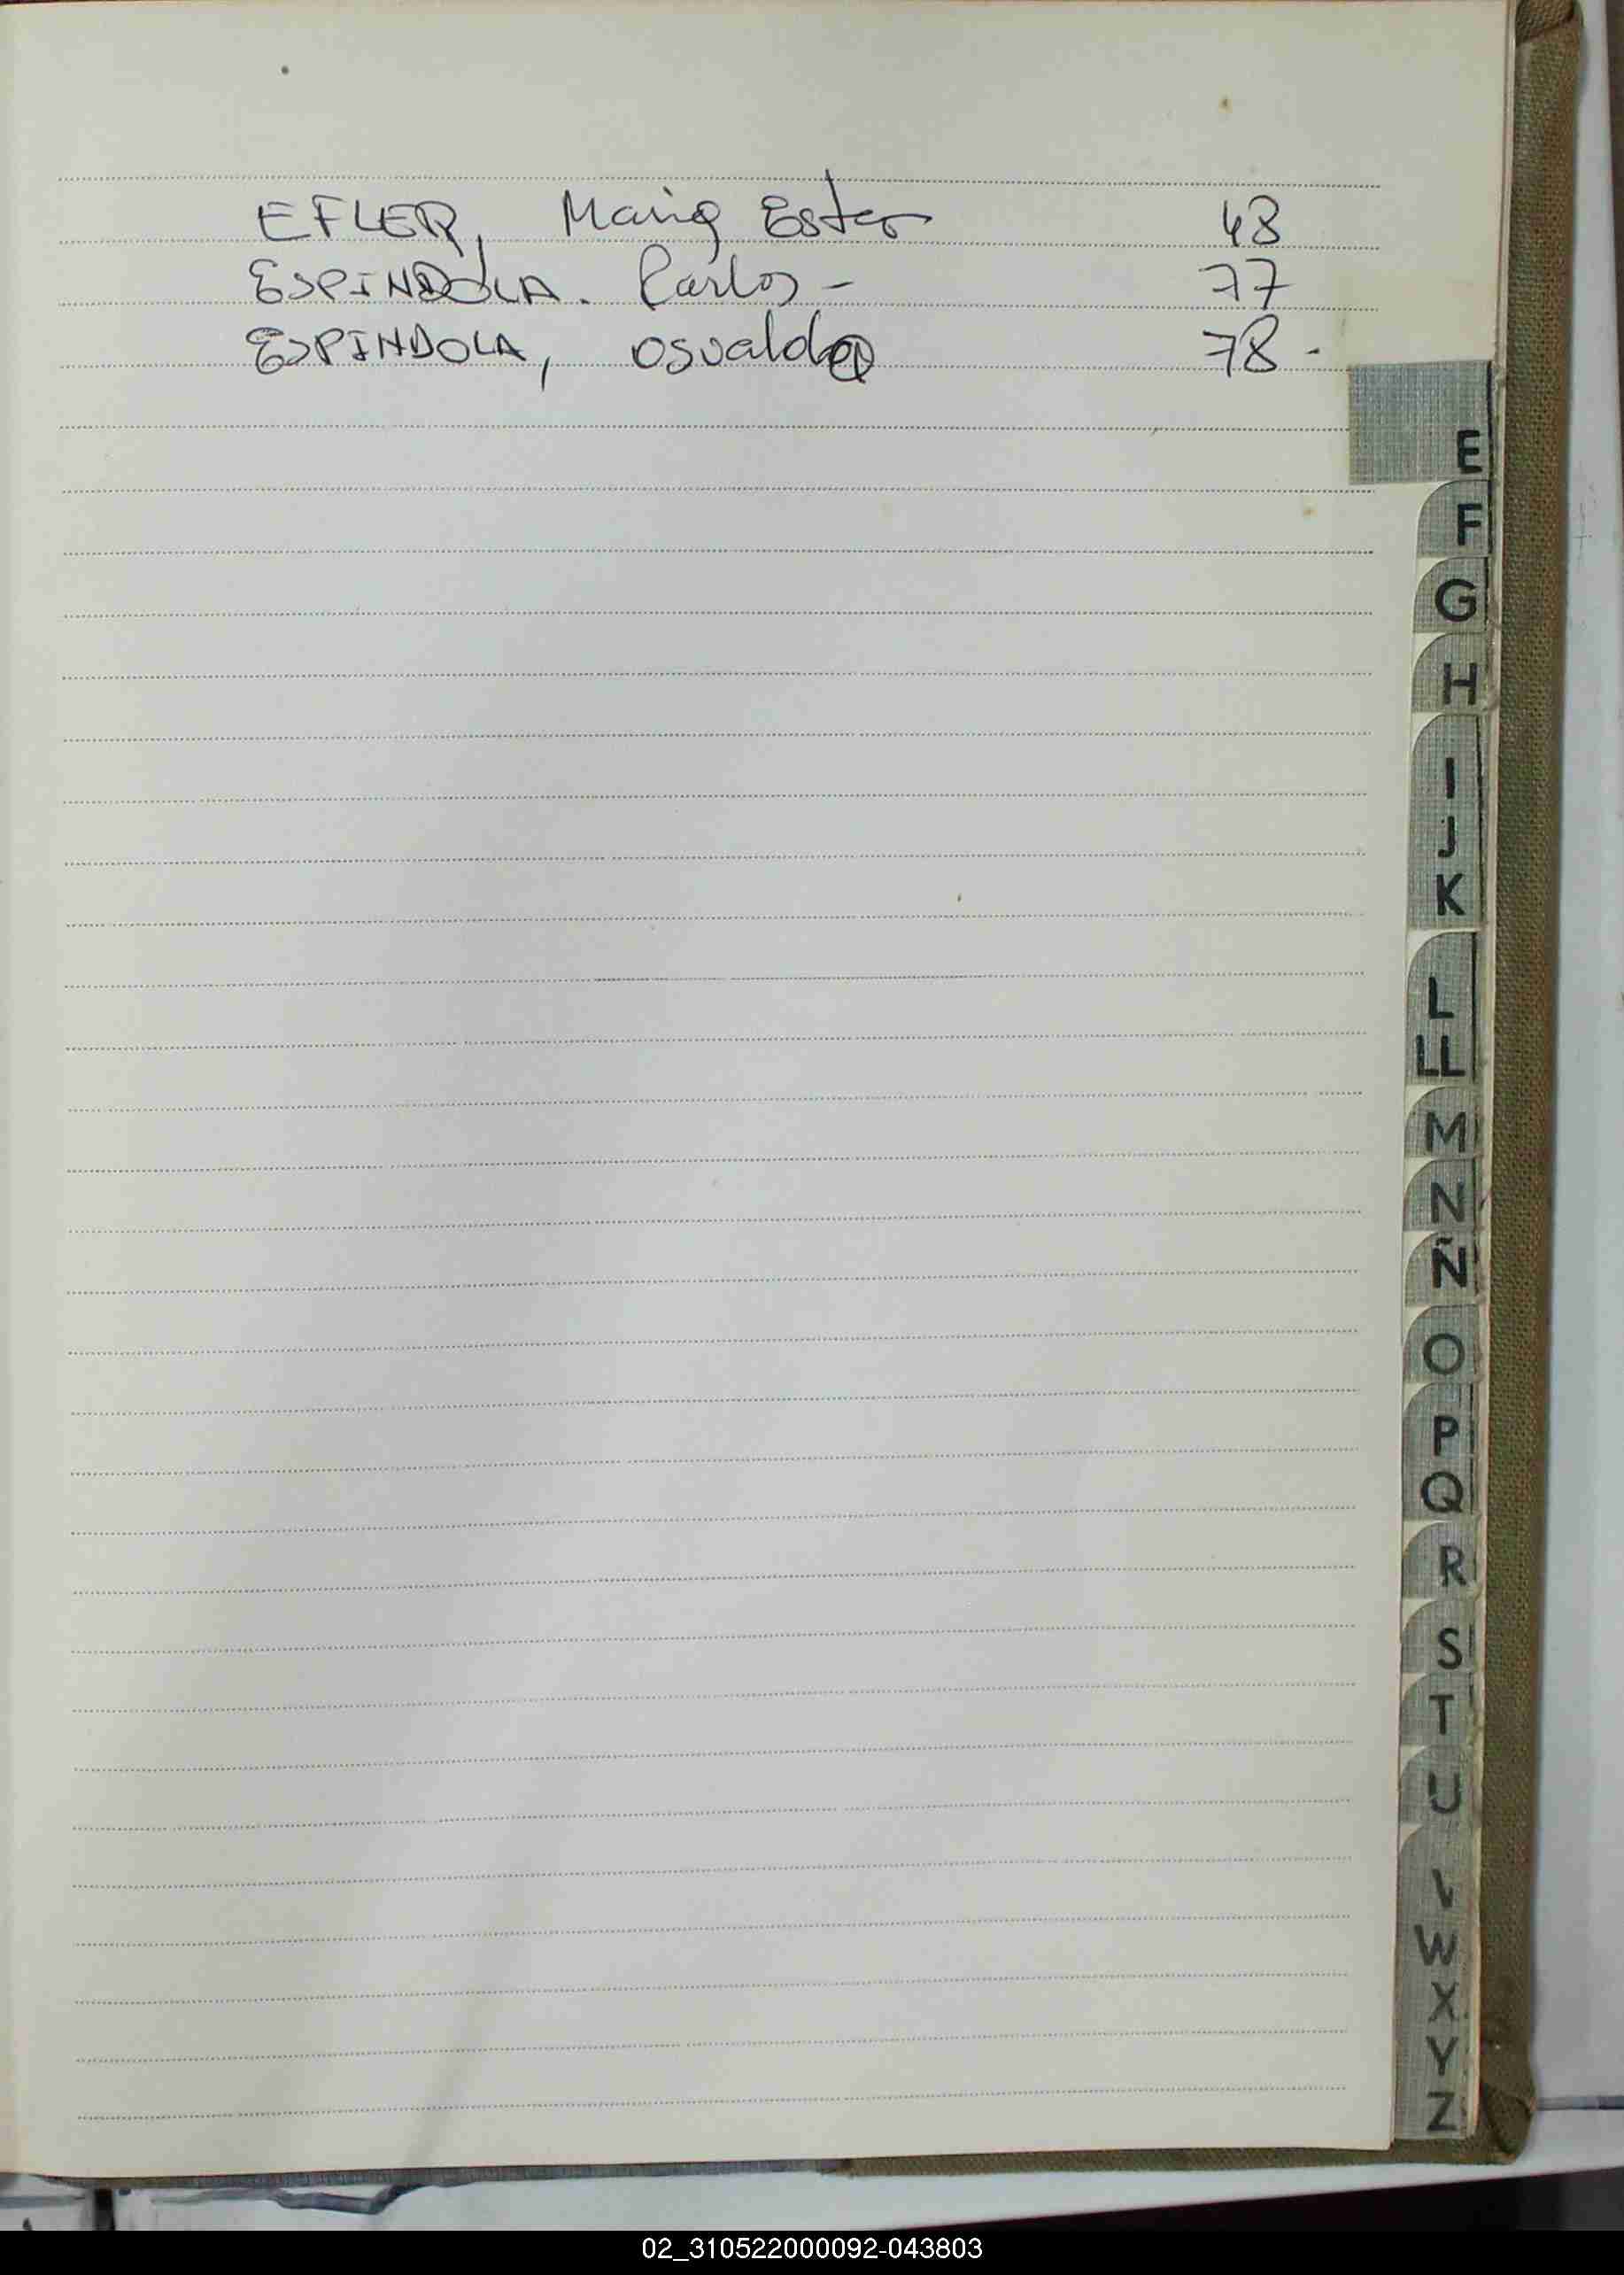 EFLER, Maria Ester 48
ESPINDOLA. Carlos - 77
ESPINDOLA, Osvaldo 78 -
E
F
G
H
I
J
K
L
LL
M
N
Ñ
O
P
Q
R
S
T
U
V
W
X
Y
Z
02_310522000092-043803